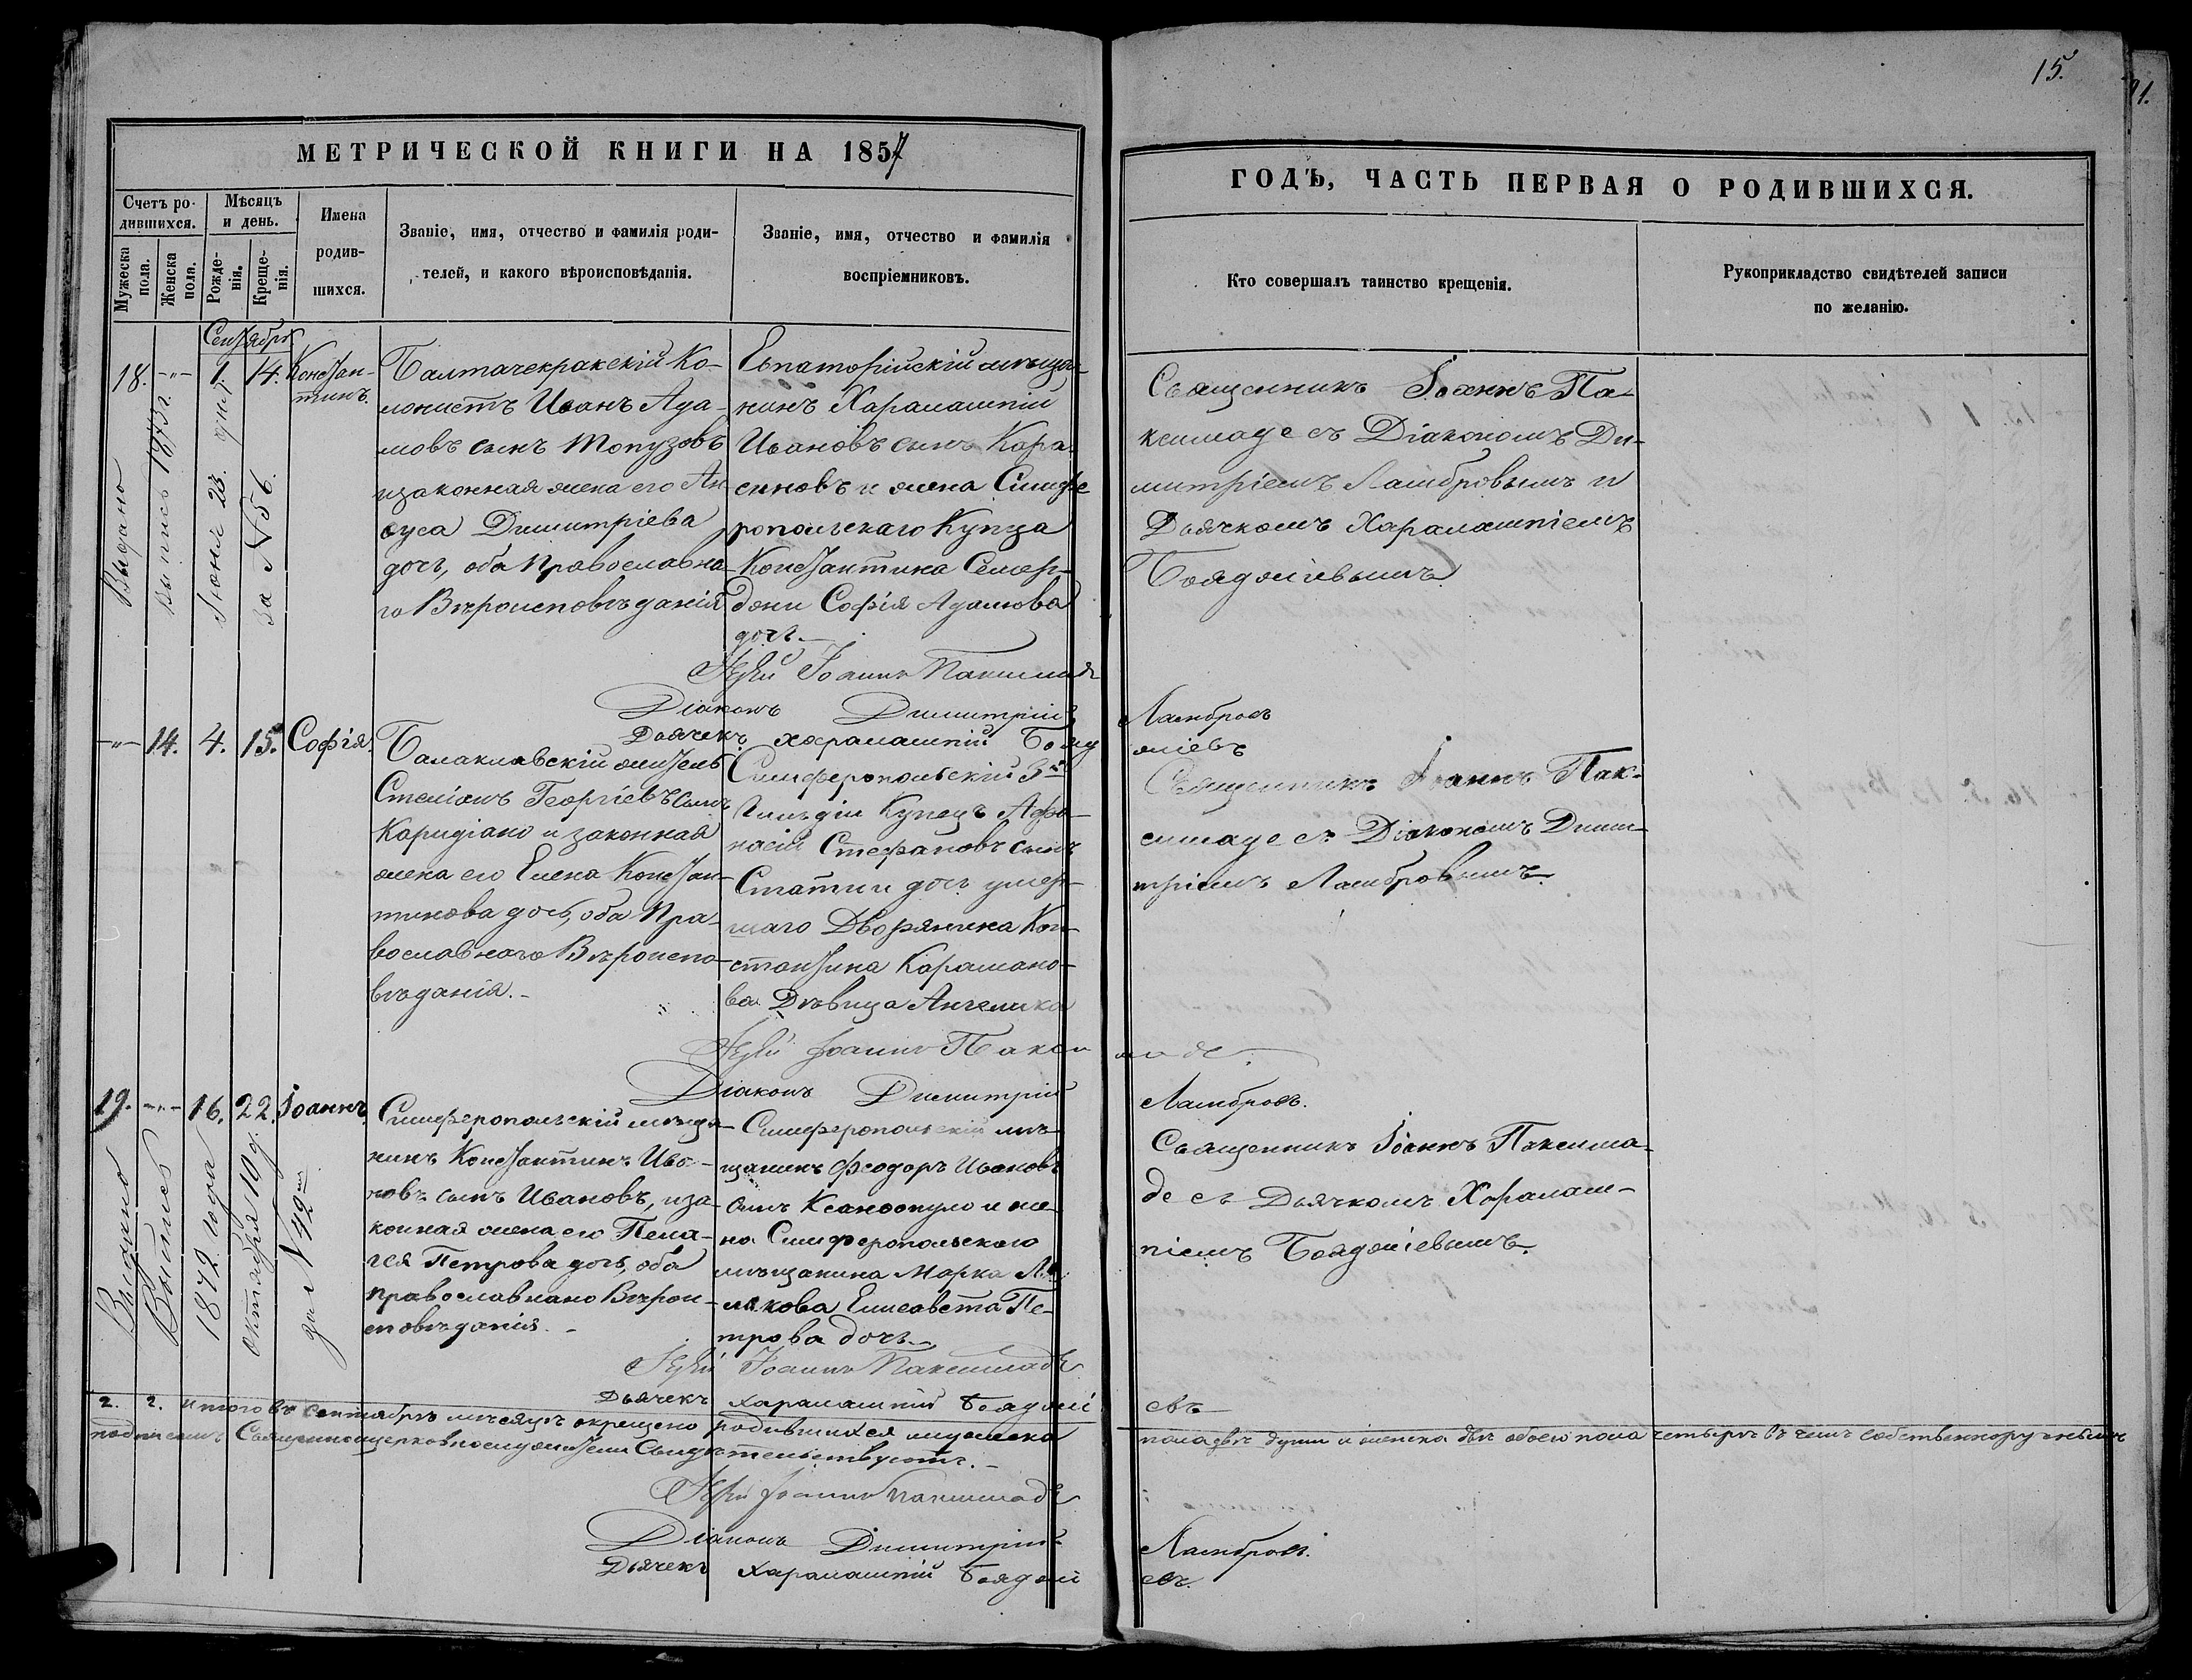 15.
21.
МЕТРИЧЕСКОЙ КНИГИ НА 1857
ГОДЪ, ЧАСТЬ ПЕРВАЯ О РОДИВШИХСЯ.
Счетъ ро-
дившихся.
Мужеска
пола.
Женска
пола.
Мѣсяцъ
и день.
Рожде-
нія.
Креще-
нія.
Имена
родив-
шихся.
Званіе, имя, отчество и фамилія роди-
телей, и какого вѣроисповѣданія.
Званіе, имя, отчество и фамилія
воспріемниковъ.
Кто совершалъ таинство крещенія.
Рукоприкладство свидѣтелей записи
по желанію.
Сентябрь
18. -"- 1. 14. Констан-
тинъ.
Выдано
выпись 1873 г.
Іюня 23.
за N 56.
Балтачекракскій Ко-
лонистъ Иванъ Ада-
мовъ сынъ Топузовъ
и законная жена его Ан-
суса Димитріева
дочь, оба Православна-
го Вѣроисповѣданія
Евпаторійскій мѣща-
нинъ Харалампій
Ивановъ сынъ Кара-
синовъ и жена Симфе
ропольскаго Купца
Константина Семер-
джи Софія Адамова
дочь.
Священникъ Іоаннъ Па-
ксимаде съ Діакономъ Ди-
митріемъ Ламбровымъ и
Дьячкомъ Харалампіемъ
Бояджіевымъ
Іерей Іоаннъ Паксимаде
Діаконъ Димитрій Ламбровъ
Дьячекъ Харалампій Бояджіевъ
-"- 14. 4. 15. Софія.
Балаклавскій житель
Стеліанъ Георгіевъ сынъ
Каридіано и законная
жена его Елена Констан-
тинова дочь, оба Пра-
вославнаго Вѣроиспо-
вѣданія.-
Симферопольскій 3й
Гильдіи Купецъ Афа-
насій Стефановъ сынъ
Стати и дочь умер-
шаго Дворянина Кон-
стантина Карамано-
ва Дѣвица Ангелика
Священникъ Іоаннъ Пак-
симаде съ Діакономъ Дими-
тріемъ Ламбровымъ.
Іерей Іоаннъ Паксимаде.
Діаконъ Димитрій Ламбровъ.
19. -"- 16. 22. Іоаннъ.
Выдано
Выпись
1872 года
октября 10 д.
за N 42м
Симферопольскій мѣща-
нинъ Константинъ Ива-
новъ сынъ Ивановъ, и за-
конная жена его Пела-
гея Петрова дочь, оба
Православнаго Вѣрои-
сповѣданія.-
Симферопольскій мѣ-
щанинъ Феодоръ Ивановъ
сынъ Ксанфопуло и же-
на Симферопольскаго
мѣщанина Марка
Елисавета Пе-
трова дочь.
Священникъ Іоаннъ Паксима-
де съ Дьячкомъ Харалам-
піемъ Бояджіевымъ.
Іерей Іоаннъ Паксимаде
Дьячекъ Харалампій Бояджіевъ
2. 2. Итого въ Сентябрѣ мѣсяцѣ окрещено родившихся мужеска пола двѣ души и женска двѣ обоего пола четыре въ чемъ собственноручнымъ
подписомъ Священноцерковнослужители Свидѣтельствуютъ.-
Іерей Іоаннъ Паксимаде
Діаконъ Димитрій Ламбровъ.
Дьячекъ Харалампій Бояджіевъ.